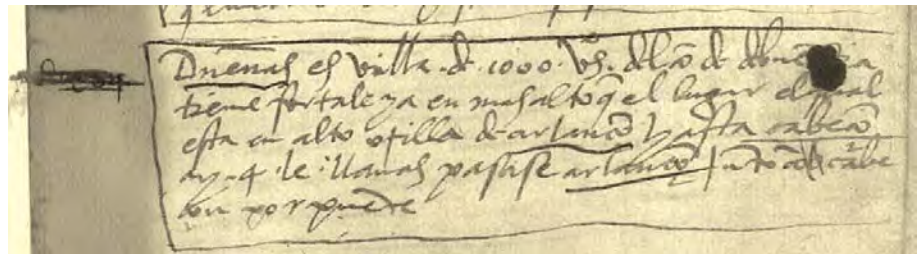 Duenas es villa . de . 1000 . vs . del cō de
tiene fortaleza en mas alto q̄ el lugar el qual
esta en alto orilla de arlancō y asta cabecō
ay . 4 . le . llanas pasase arlancō Junto a cabe
çon por puente